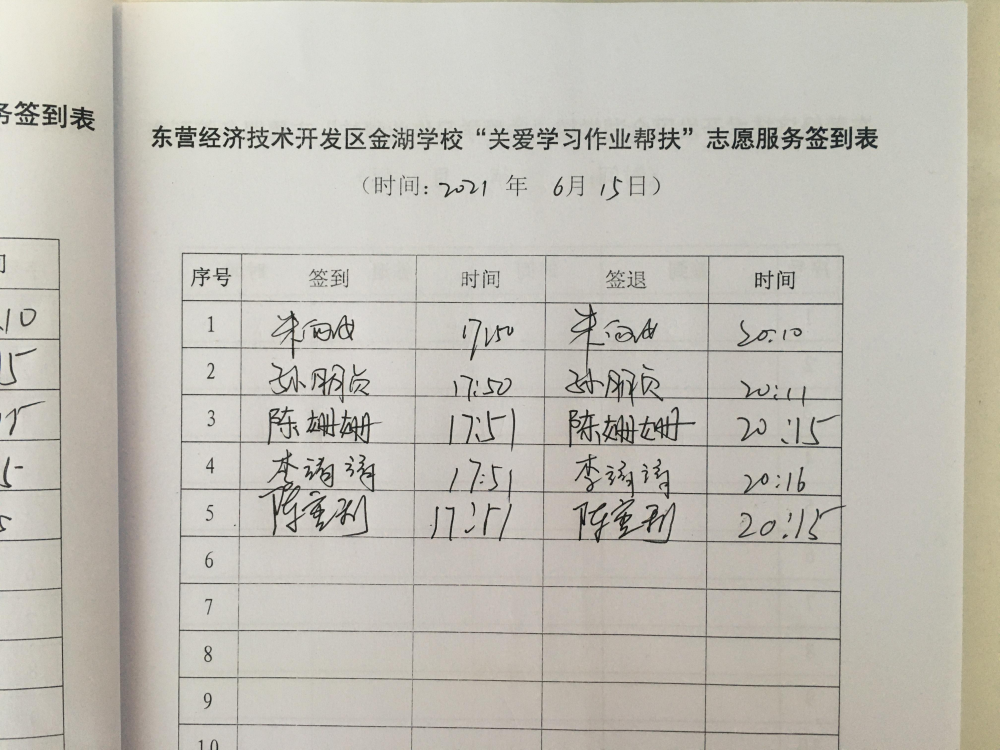 务签到表
东营经济技术开发区金湖学校“关爱学习作业帮扶”志愿服务签到表
（时间: 2021 年 6月 15日）
序号 签到 时间 签退 时间
1 17:50 20:10
2 孙朋贞 17:50 孙朋贞 20:11
3 陈姗姗 17:51 陈姗姗 20:15
4 李靖靖 17:51 李靖靖 20:16
5 陈重利 17:51 陈重利 20:15
6
7
8
9
10